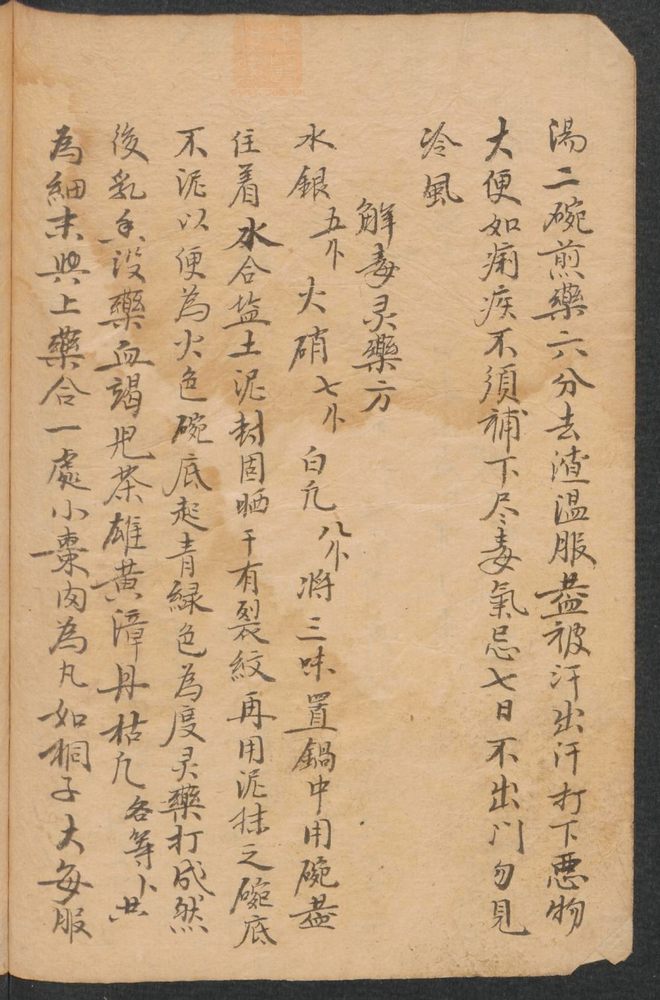 湯二碗煎藥六分去渣温服盖被汗出汗打下惡物
大便如痢疾不須補下尽毒氣忌七日不出门勿見
冷風
解毒灵藥方
水銀五个火硝七个白凢八个將三味置鍋中用碗盖
住着水合盐土泥封固晒干有裂紋再用泥抹之碗底
不泥以便為火色碗底起青緑色為度灵藥打成然
後乳香没藥血竭児茶雄黄漳丹枯凢各等卜共
為細末與上藥合一處小棗肉為丸如桐子大每服